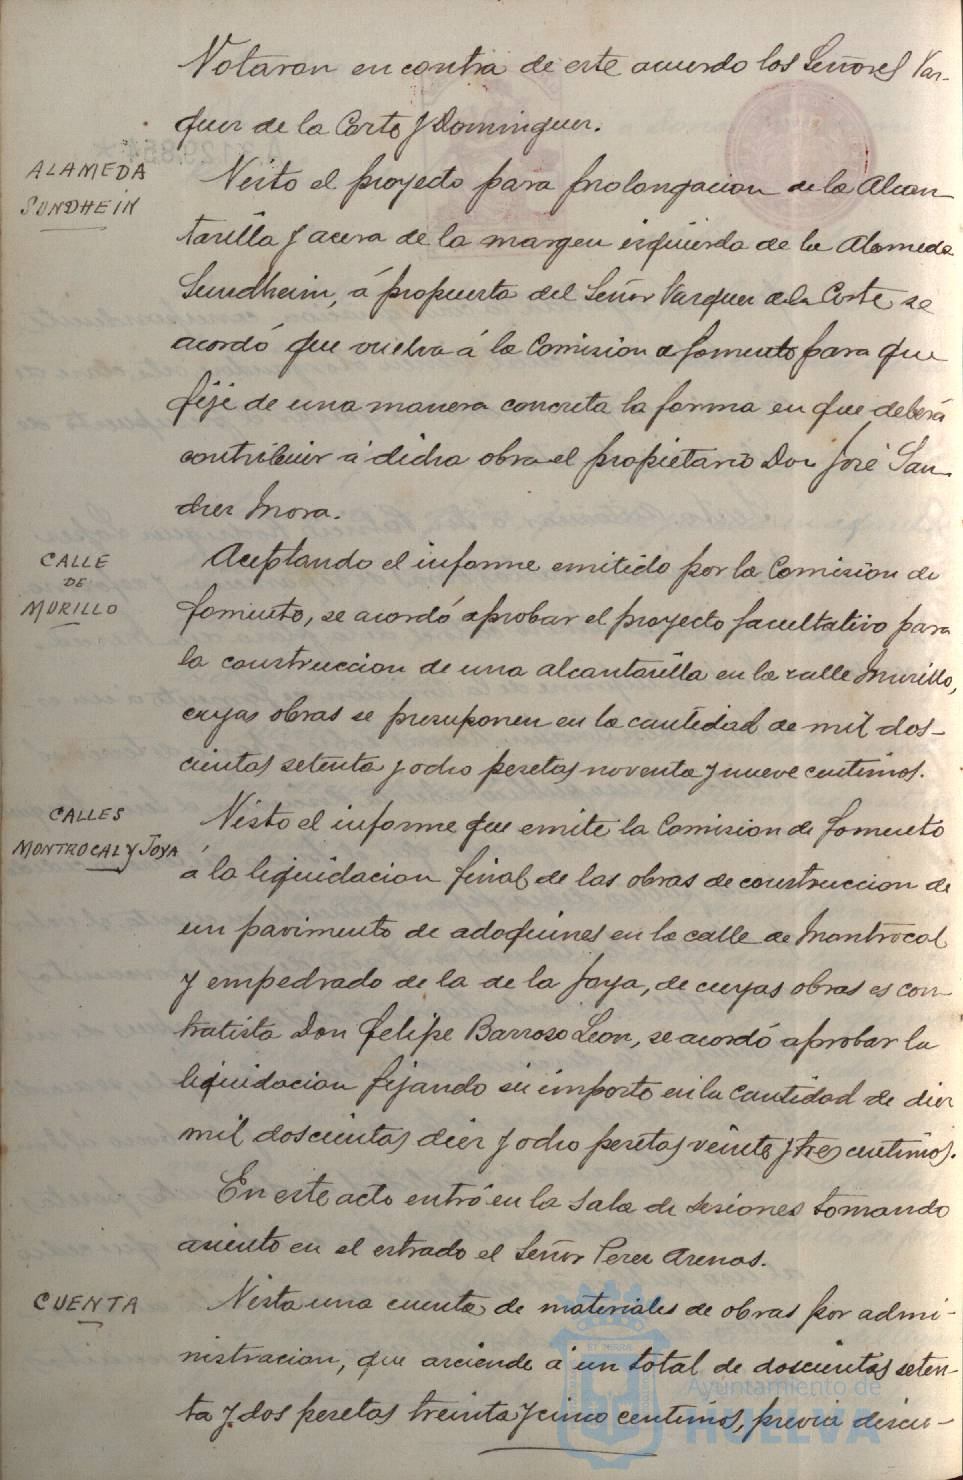 Votaron en contra de este acuerdo los Señores Vaz-
quez de la Corte y Dominguez.
ALAMEDA
SUNDHEIN
Visto el proyecto para prolongacion de la Alcan
tarilla y acera de la margen izquierda de la Alameda
Sundheim, á propuesta del Señor Vazquez de la Corte se
acordó que vuelva á la Comision de fomento para que
fije de una manera concreta la forma en que deberá
contribuir á dicha obra el propietario Don José San
chez Mora.
CALLE
DE
MURILLO
Aceptando el informe emitido por la Comision de
fomento, se acordó aprobar el proyecto facultativo para
la construccion de una alcantarilla en la calle Murillo,
cuyas obras se presuponen en la cantidad de mil dos-
cientas setenta y ocho pesetas noventa y nueve centimos.
CALLES
MONTROCAL Y JOYA
Visto el informe que emite la Comision de fomento
á la liquidacion final de las obras de construccion de
un pavimento de adoquines en la calle de Montrocal
y empedrado de la de la Joya, de cuyas obras es con
tratista Don Felipe Barroso Leon, se acordó aprobar la
liquidacion fijando su importe en la cantidad de diez
mil doscientas diez y ocho pesetas veinte y tres centimos.
En este acto entró en la Sala de sesiones tomando
asiento en el estrado el Señor Perez Arenas.
CUENTA
Vista una cuenta de materiales de obras por admi-
nistracion, que asciende á un total de doscientas seten-
ta y dos pesetas treinta y cinco centimos, previa discu-
Ayuntamiento de
HUELVA